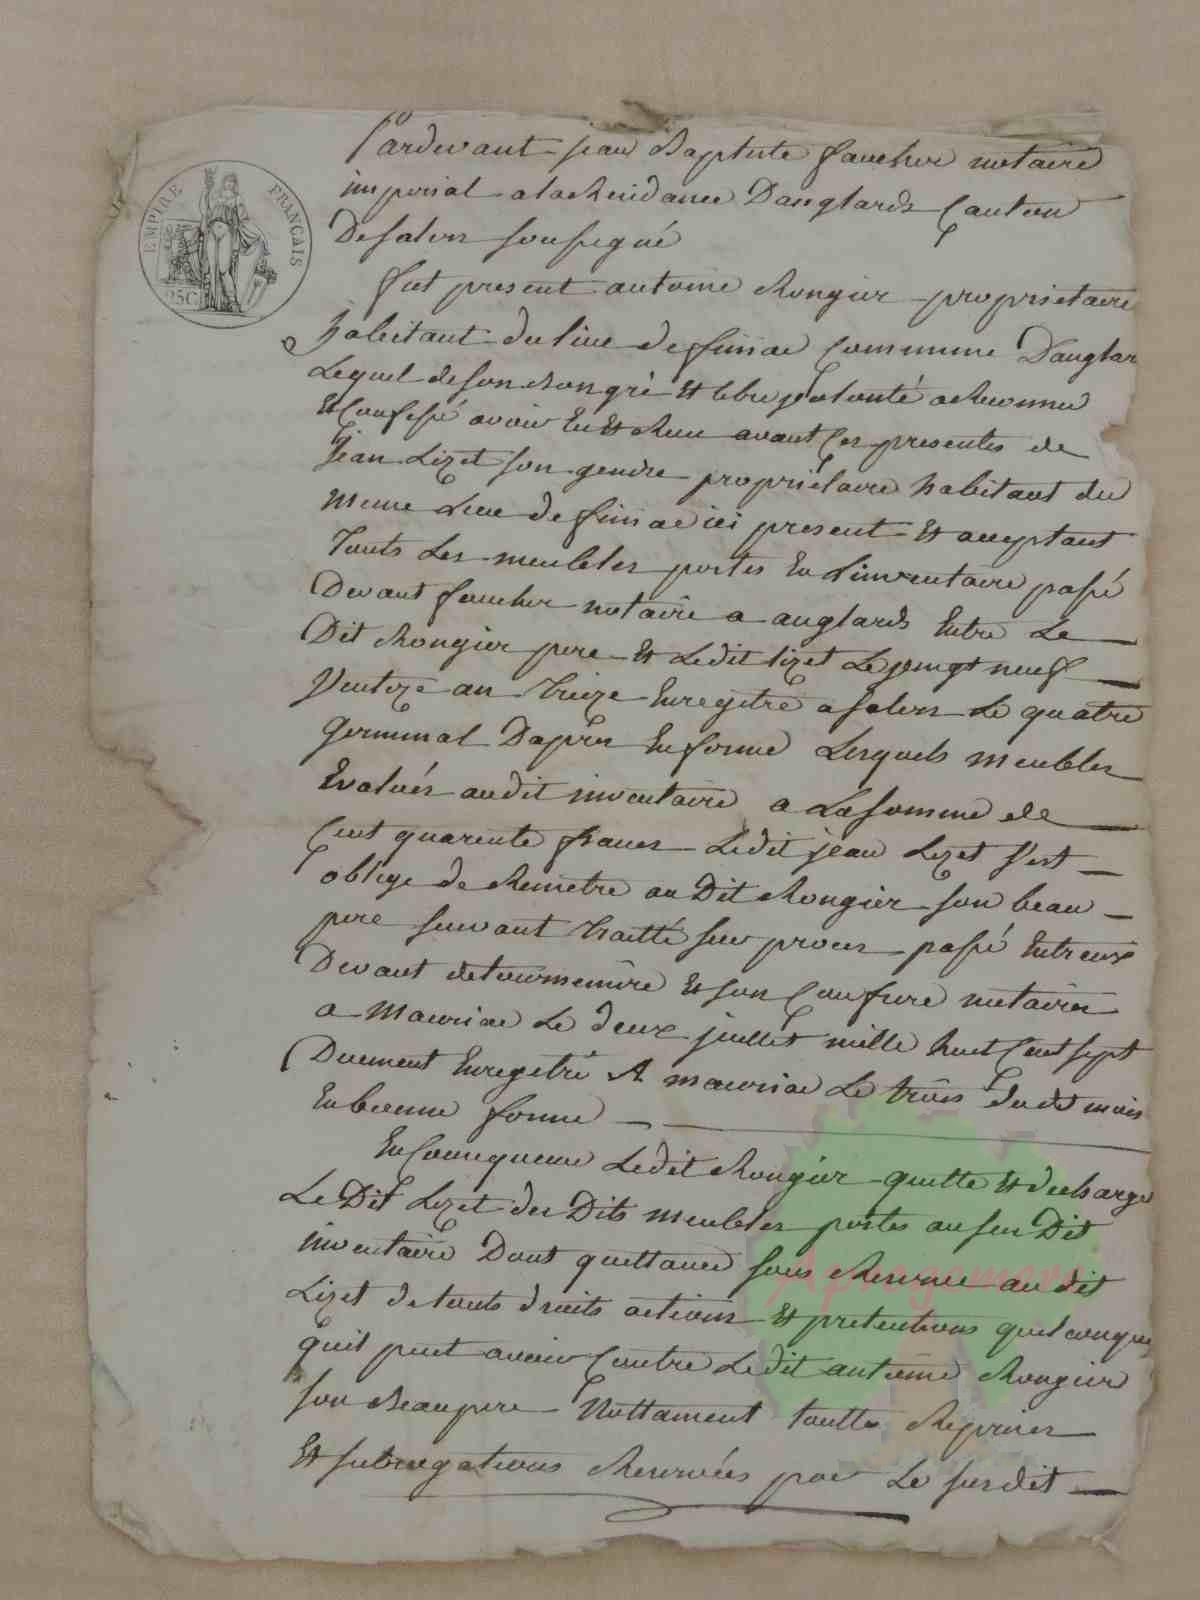 EMPIRE FRANÇAIS
25C
Pardevant jean Baptiste faucher notaire
imperial a la Residance Danglards Canton
De salers soussigné
fut present antoine Rongier proprietaire
habitant du lieu de finiac Commune Danglar
Lequel de son bon gré Et libre volonté a Reconnu
Et Confessé avoir Eu Et Recu avant Ces presentes de
jean Lizet son gendre propriétaire habitant du
meme Lieu de finiac ici present Et acceptant
Touts Les meubles portes En Linventaire passé
Devant faucher notaire a anglards Entre Le
Dit Rongier pere Et Ledit lizet Le vingt neuf
Ventoze an treize Enregitré a salers Le quatre
germinal Dapres En forme Lesquels meubles
Evalués audit inventaire a La somme de
Cent quarente francs Ledit jean Lizet s'est
oblige de Remetre au Dit Rongier son beau
pere suivant traitté sur proces passé Entreux
Devant detournemire Et son Confrere notaires
a mauriac Le deux juillet mille huit Cent sept
Duement Enregitré A mauriac Le trois dudit mois
En bonne forme
En Consequence Ledit Rongier quitte Et decharge
Le Dit Lizet des Dits meubles portes au sus Dit
inventaire Dont quittance sous Reserve audit
Lizet de touts droits actions Et pretentions quelconque
quil peut avoir Contre Ledit antoine Rongier
son Beaupere Nottament touttes Reprises
Et subrogations Reservées par Le susdit
Aprogemere